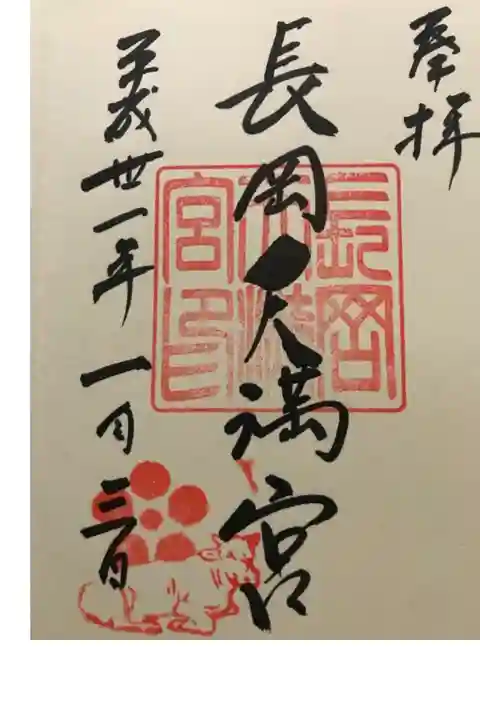 奉拝
長岡天満宮
長岡天満宮印
平成卅一年一月三日